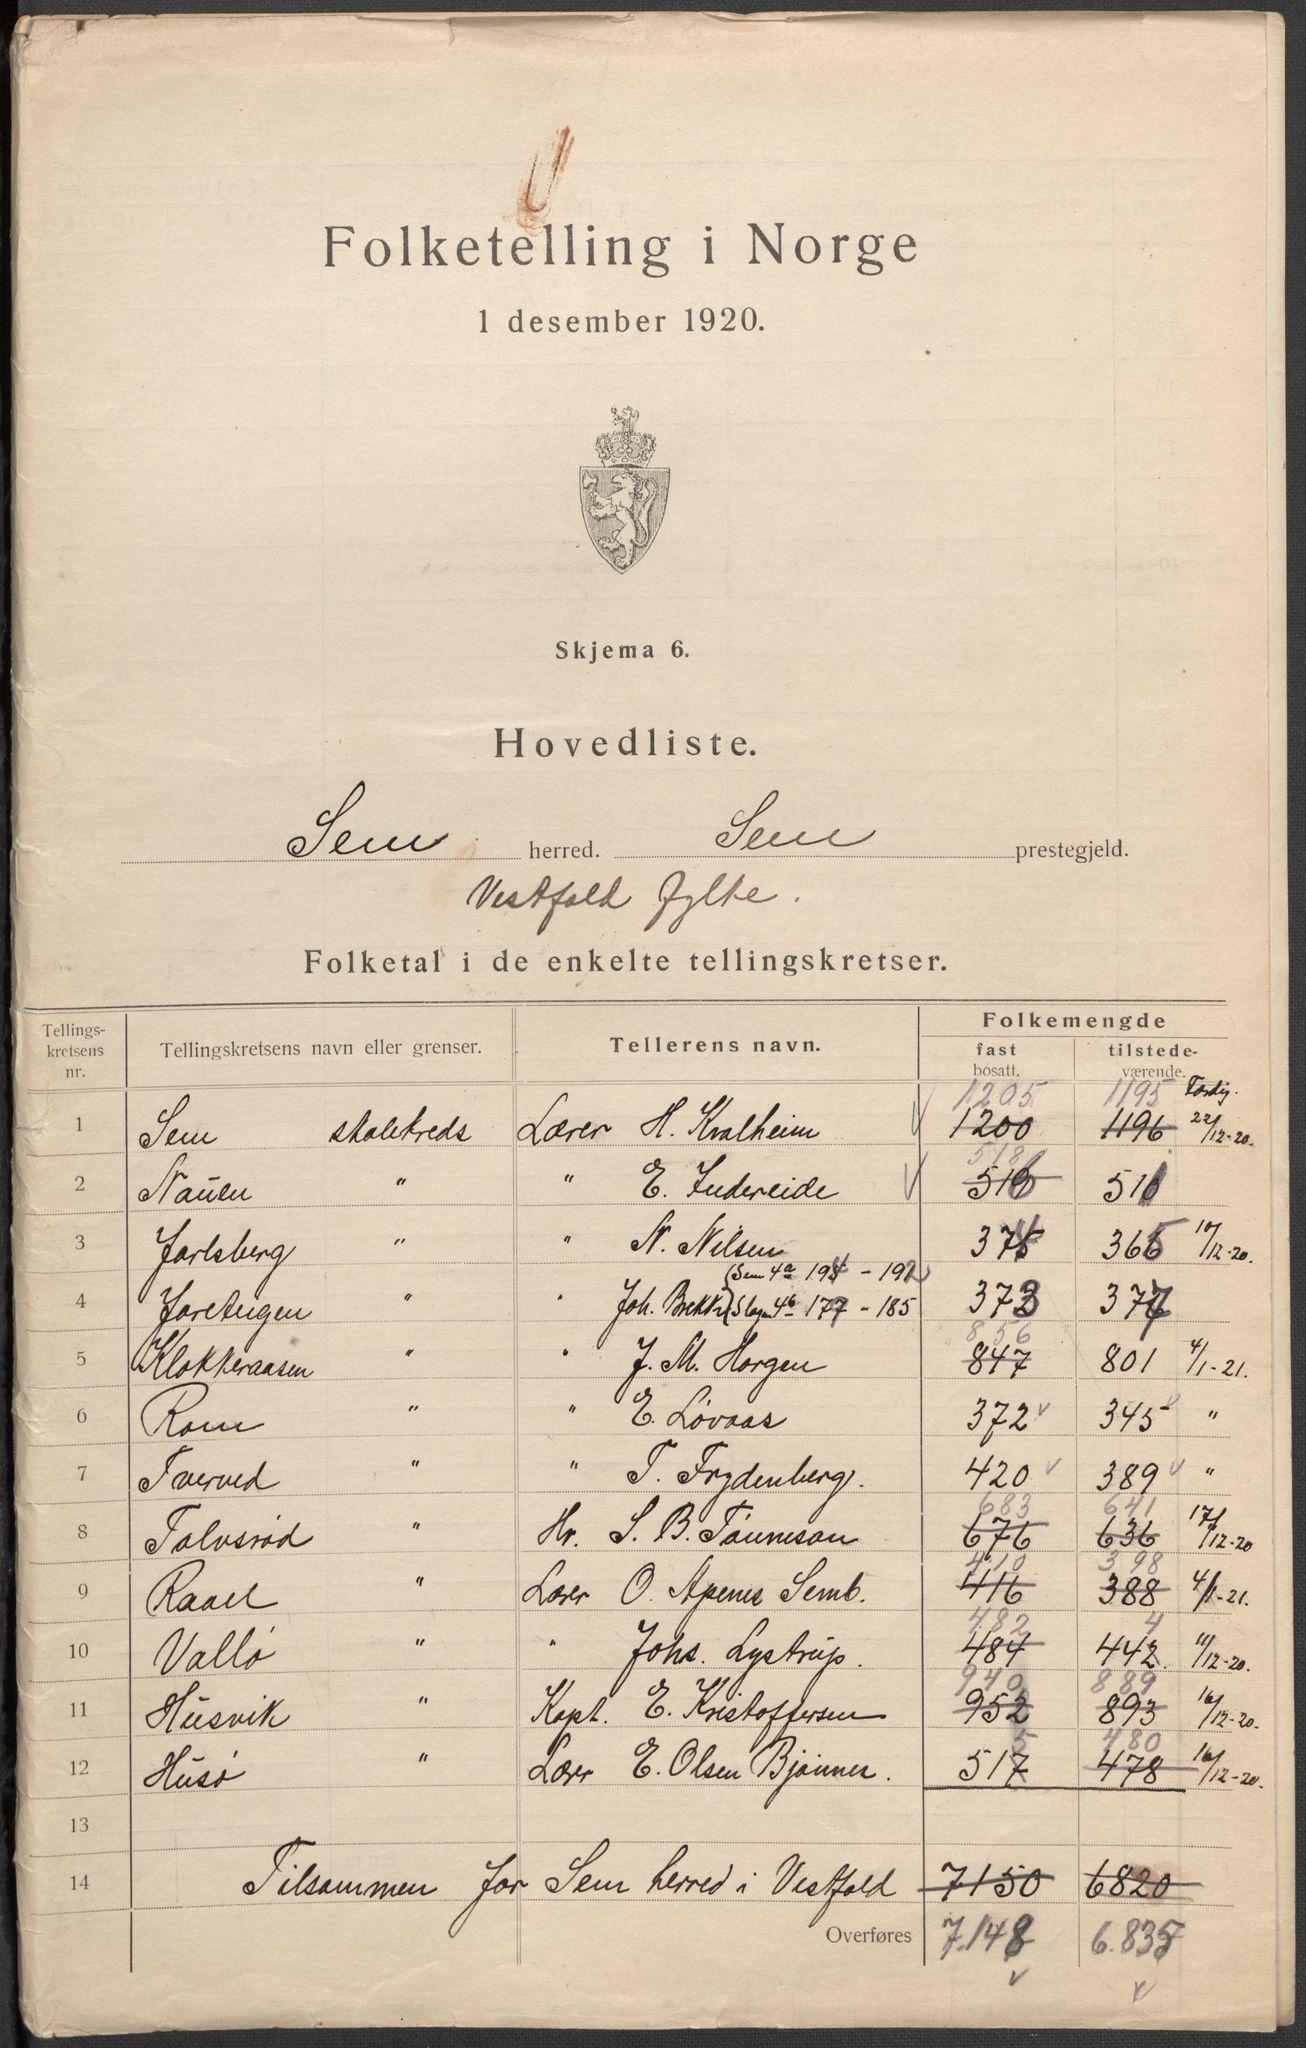 Folketelling i Norge
1 desember 1920.
Skjema 6.
Hovedliste.
Sem herred. Sem prestegjeld.
Vestfold fylke.
Folketal i de enkelte tellingskretser.
Tellings-kretsens nr. Tellingskretsens navn eller grenser. Tellerens navn. Folkemengde
fast bosatt. tilstede-værende.
1205 1195 Færdig.
1 Sem skolekreds Lærer H. Kvalheim 1200 1196 22/12-20.
518
2 Nauen " " E. Indereide 516 511
3 Jarlsberg " " N. Nilsen 374 365 10/12-20.
(Sem 4a 194 - 192
4 Jareteigen " " Joh. Brekke (Slagn 4b 177 - 185 373 377
856
5 Klokkeraasen " " J. M. Horgen 847 801 4/1-21.
6 Rom " " E. Løvaas 372 345 "
7 Tverved " " T. Frydenberg. 420 389 "
683 641
8 Tolvsrød " Hr. S. B. Tønneson 676 636 17/12-20
410 398
9 Raael " Lærer O. Apenes Semb. 416 388 4/1-21.
482 4
10 Vallø " " Johs. Lystrup. 484 442. 11/12-20.
940 889
11 Husvik " Kapt. E. Kristoffersen 952 893 16/12-20.
5 480
12 Husø " Lærer E. Olsen Bjønnes. 517 478 16/12-20.
13
14 Tilsammen for Sem herred i Vestfold 7150 6820
Overføres 7.148 6.835